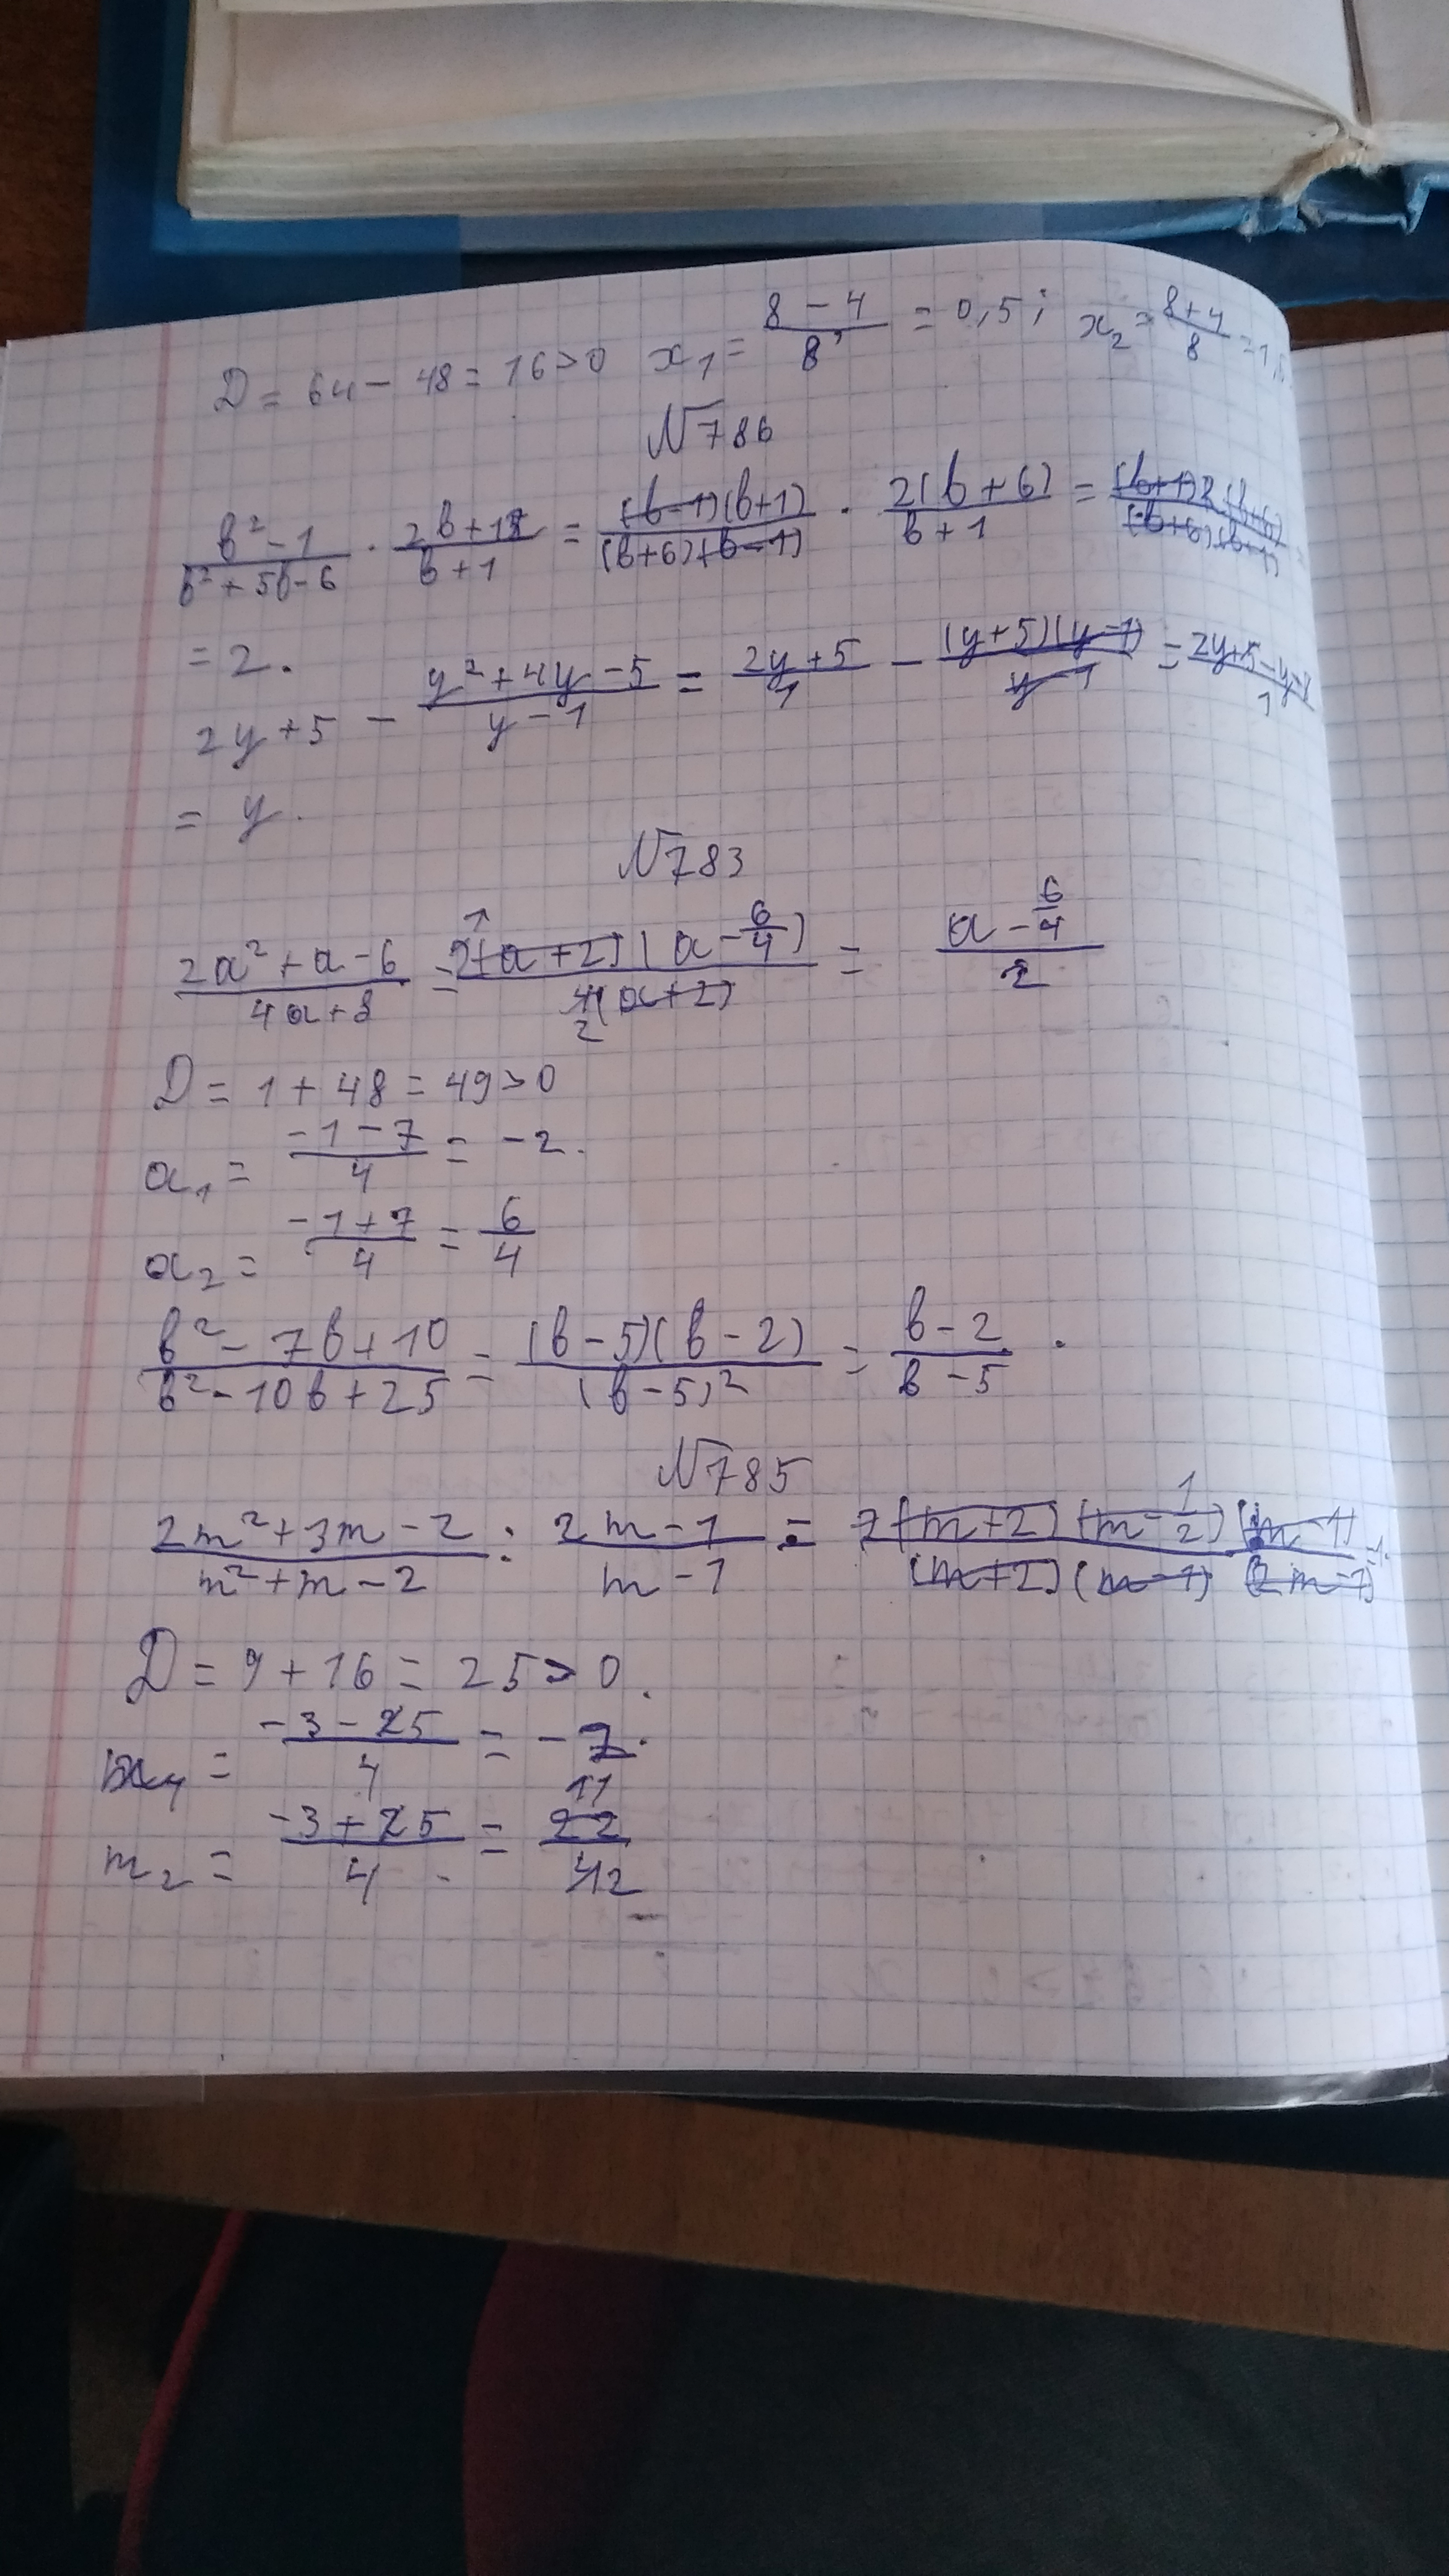 D = 64 − 48 = 16 > 0 x₁ = (8 − 4)/8 = 0,5; x₂ = (8+4)/8 = 1,5
N786
(b² − 1)/(b² + 5b − 6) · (2b + 12)/(b + 1) = ((b−1)(b+1))/((b+6)(b−1)) · (2(b+6))/(b+1) = ((b+1)2(b+6))/((b+6)(b+1)) =
= 2.
2y + 5 − (y² + 4y − 5)/(y − 1) = (2y + 5)/1 − ((y+5)(y−1))/(y−1) = (2y+5−y−5)/1
= y.
N783
(2a² + a − 6)/(4a + 8) = (2(a+2)(a − 6/4))/(4(a+2)) = (a − 6/4)/2
D = 1 + 48 = 49 > 0
a₁ = (−1 − 7)/4 = −2.
a₂ = (−1 + 7)/4 = 6/4
(b² − 7b + 10)/(b² − 10b + 25) = ((b − 5)(b − 2))/((b − 5)²) = (b − 2)/(b − 5).
N785
(2m² + 3m − 2)/(m² + m − 2) : (2m − 1)/(m − 1) = (2(m+2)(m − 1/2)(m − 1))/((m+2)(m−1)(2m−1)) = 1.
D = 9 + 16 = 25 > 0.
m₁ = (−3 − 25)/4 = −7.
m₂ = (−3 + 25)/4 = 22/4 11/2